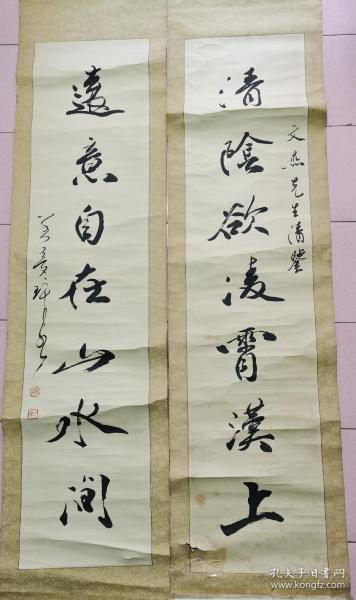 文燕先生清鑒
清陰欲凌霄漢上
遠意自在山水間
孔夫子旧书网
www.kongfz.com